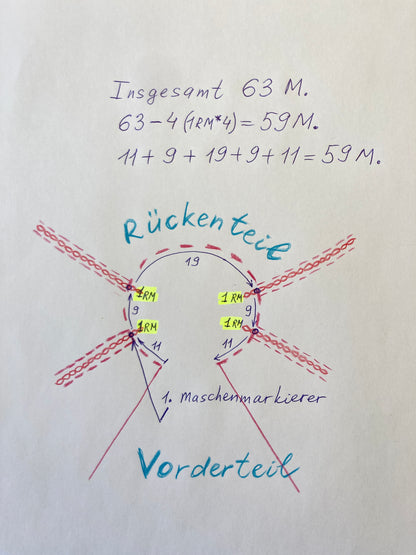 Insgesamt 63 M.
63-4(1RM*4)=59M.
11+9+19+9+11=59M.
Rückenteil
19
1RM 1RM
9 9
1RM 1RM
11 11
1. Maschenmarkierer
Vorderteil